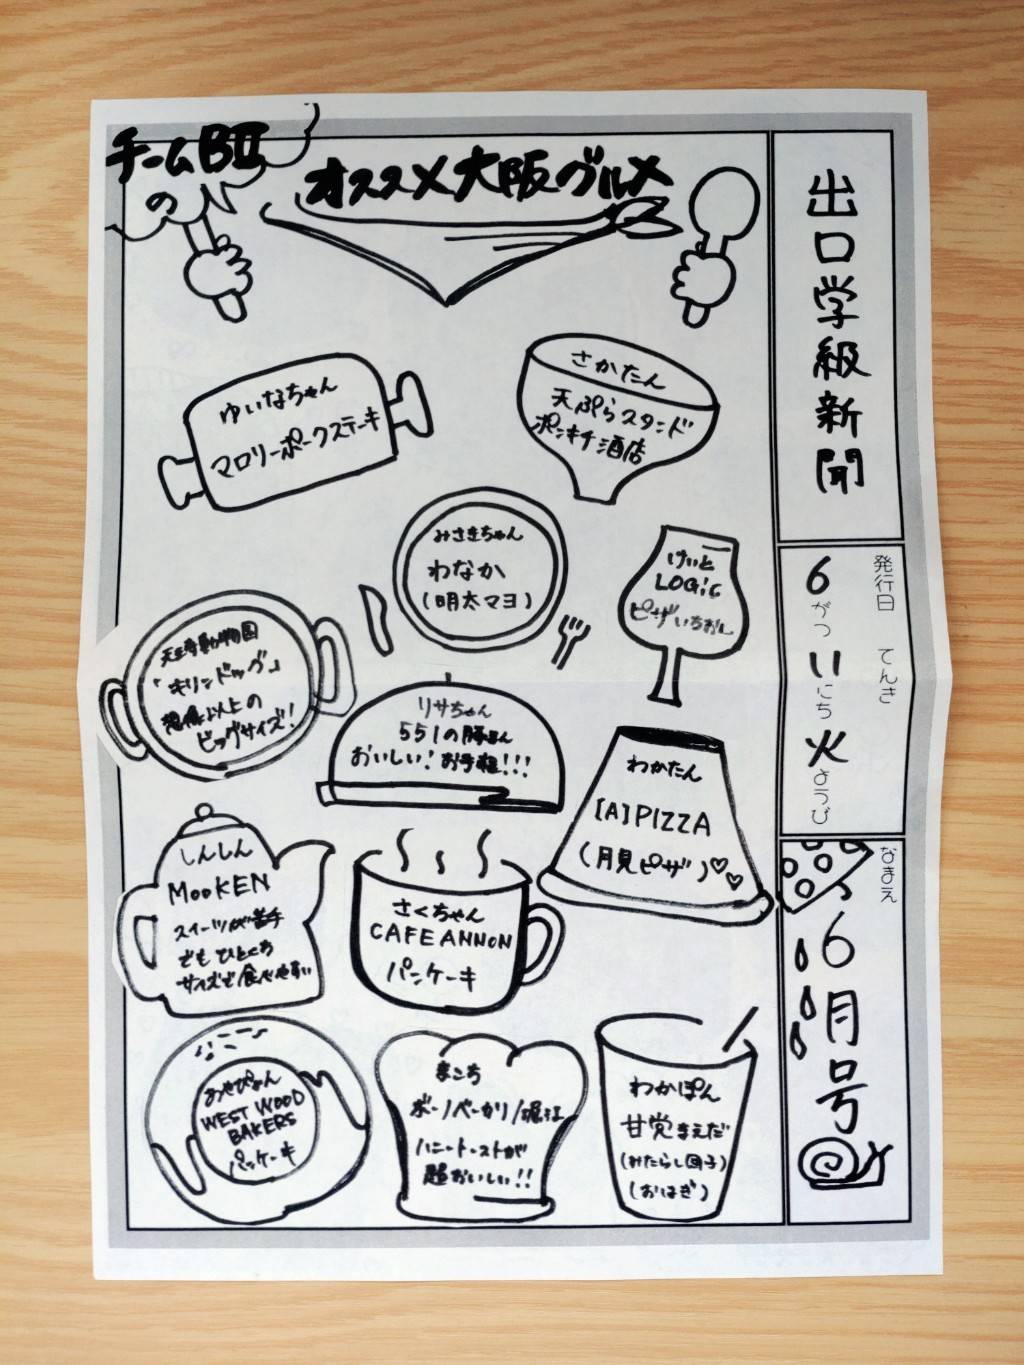 出口学級新聞
発行日
てんき
6がつ11にち火ようび
なまえ
6月号
チームBⅡ
の
オススメ大阪グルメ
ゆいなちゃん
マロリーポークステーキ
さかたん
天ぷらスタンド
ポンキチ酒店
みさきちゃん
わなか
(明太マヨ)
けいと
LOGiC
ピザいちおし
天王寺動物園
「キリンドッグ」
想像以上の
ビッグサイズ!
リサちゃん
551の豚まん
おいしい!お手軽!!!
わかたん
[A]PIZZA
(月見ピザ)♡♡
しんしん
MooKEN
スイーツが苦手
でもひとくち
サイズで食べやすい
さくちゃん
CAFE ANNON
パンケーキ
あやぴょん
WEST WOOD
BAKERS
パンケーキ
まこち
ボーノベーカリー/堀江
ハニートーストが
超おいしい!!
わかぽん
甘党まえだ
(みたらし団子)
(おはぎ)